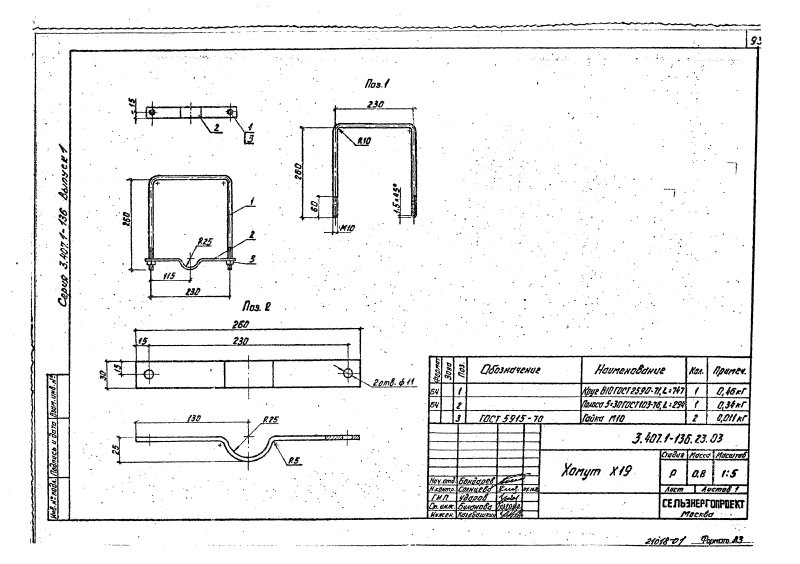 93
Серия 3.407.1-136 Выпуск 1
15
2
1
9
Поз. 1
230
R10
260
60
1,5×45°
М10
260
1
2
R25
5
115
230
Поз. 2
260
15
230
15
30
2 отв. ф 11
130
R25
25
R5
Формат
Зона
Поз.
Обозначение
Наименование
Кол.
Примеч.
БЧ 1 Круг В10 ГОСТ 2590-71, L=747 1 0,46 кг
БЧ 2 Полоса 5×30 ГОСТ 103-76, L=294 1 0,34 кг
3 ГОСТ 5915-70 Гайка М10 2 0,011 кг
3.407.1-136.23.03
Хомут Х19
Стадия Масса Масштаб
Р 0,8 1:5
Лист Листов 1
СЕЛЬЭНЕРГОПРОЕКТ
Москва
Нач. отд. Бондарев
Н.контр. Солнцева
ГИП Ударов
Гл. инж.
Инж. Калабашкин
Инв. № подл. Подпись и дата Взам. инв. №
21018-01 Формат А3